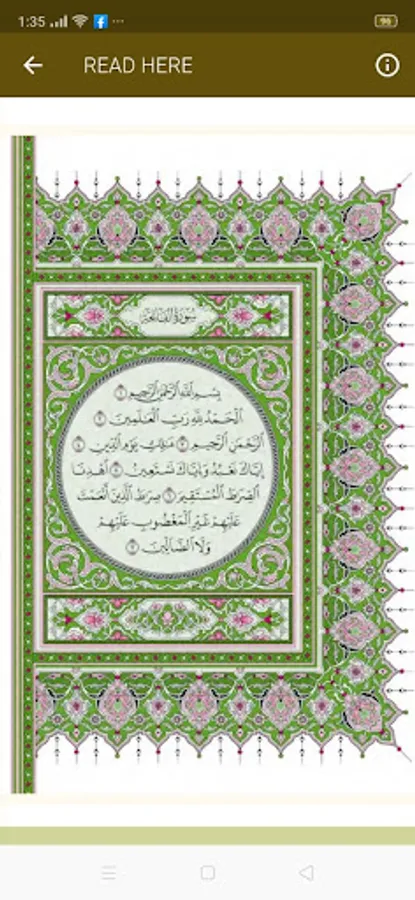 1:35
96
READ HERE
سُورَةُ الفَاتِحَةِ
بِسْمِ اللَّهِ الرَّحْمَٰنِ الرَّحِيمِ ١
الْحَمْدُ لِلَّهِ رَبِّ الْعَالَمِينَ ٢
الرَّحْمَٰنِ الرَّحِيمِ ٣ مَالِكِ يَوْمِ الدِّينِ ٤
إِيَّاكَ نَعْبُدُ وَإِيَّاكَ نَسْتَعِينُ ٥ اهْدِنَا
الصِّرَاطَ الْمُسْتَقِيمَ ٦ صِرَاطَ الَّذِينَ أَنْعَمْتَ
عَلَيْهِمْ غَيْرِ الْمَغْضُوبِ عَلَيْهِمْ
وَلَا الضَّالِّينَ ٧